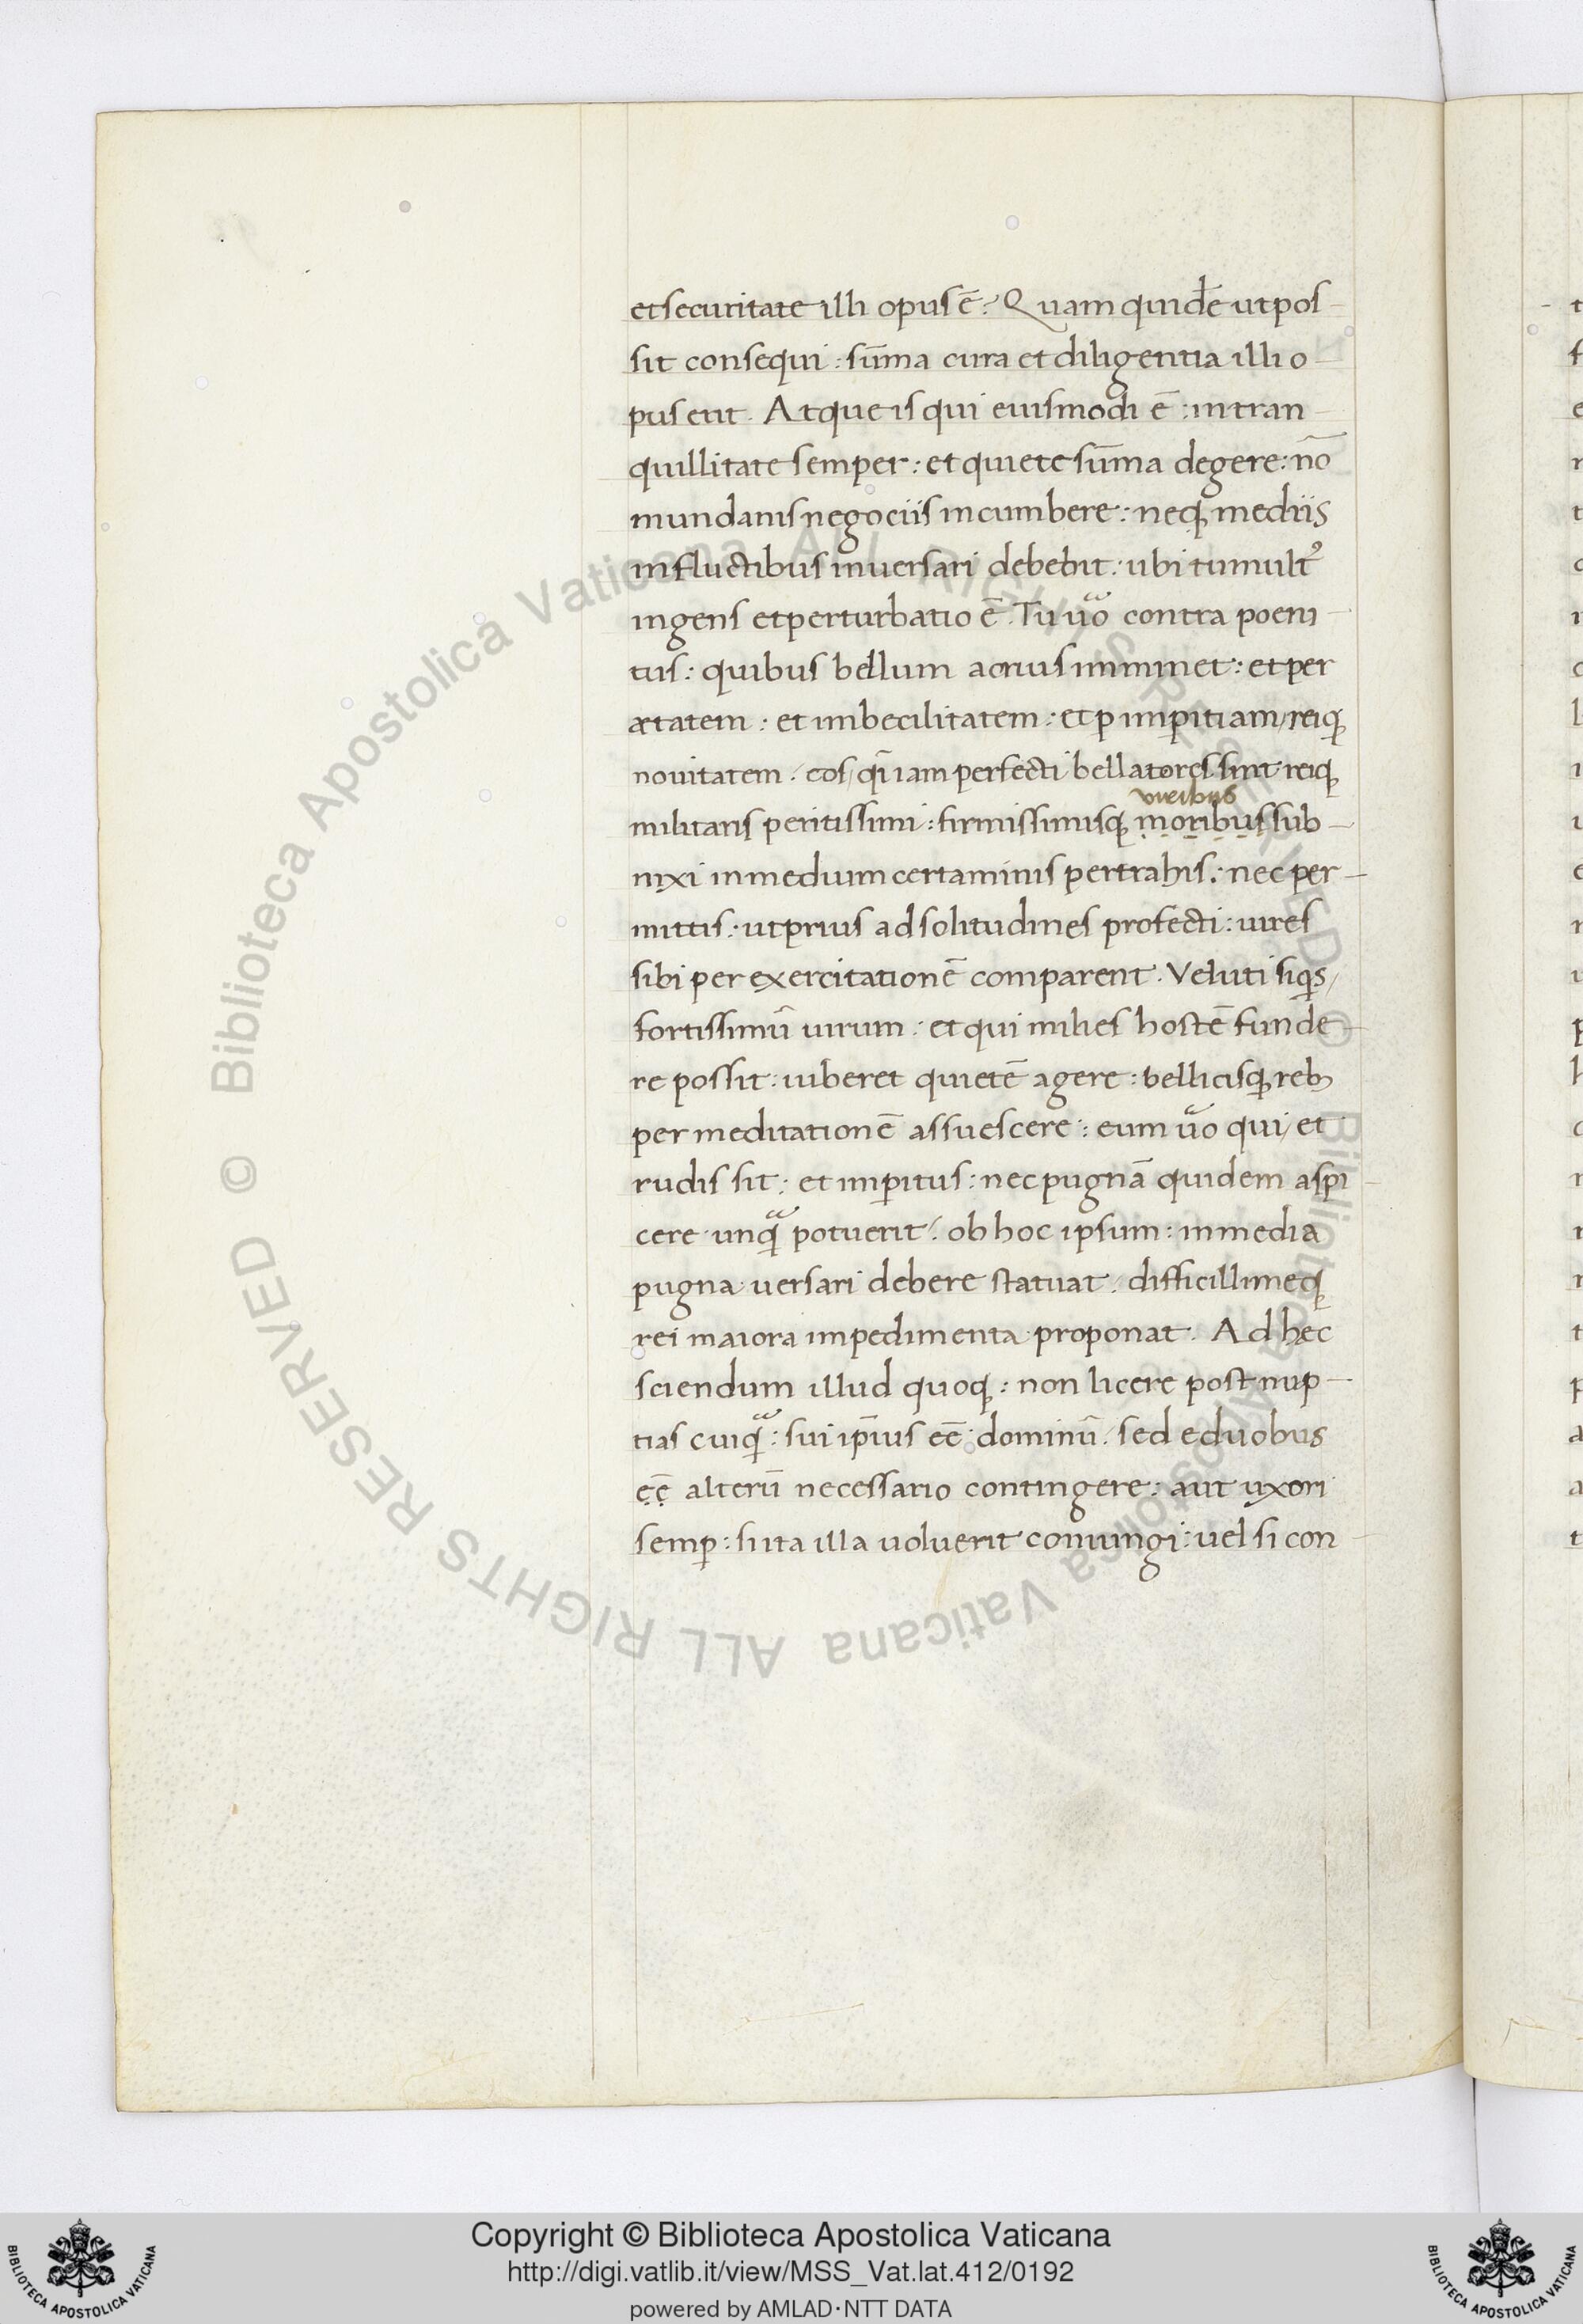 et securitate illi opus ē? Quam quidē ut pos
sit consequi: sūma cura et diligentia illi o
pus erit. Atque is qui euismodi ē: in tran
quillitate semper: et quiete sūma degere: nō
mundanis negociis incumbere: neq̨ mediis
in fluctibus inuersari debebit: ubi tumultꝰ
ingens et perturbatio ē. Tu uͣo contra poeni
tus: quibus bellum acrius imminet: et per
ætatem: et imbecilitatem: et ꝑ imꝑitiam / reiq̨
nouitatem / eos / qui iam perfecti bellatores sint reiq̨
uiribus
militaris peritissimi: firmissimisq̨ moribus sub
nixi in medium certaminis pertrahis: nec per
mittis: ut prius ad solitudines profecti: uires
sibi per exercitationē comparent. Veluti siq̇s /
fortissimū uirum: et qui milies hostē funde
re possit: iuberet quietē agere: bellicisq̨ reb;
per meditationē assuescere: eum uͣo qui / et
rudis sit: et imꝑitus: nec pugnā quidem aspi
cere unq̨ͣ potuerit / ob hoc ipsum: in media
pugna uersari debere statuat / difficillimeq̨
rei maiora impedimenta proponat. Ad hęc
sciendum illud quoq̨: non licere post nup
tias cuiq̨ͣ: sui ip̄ius eē dominū / sed e duobus
ęę̄ alterū necessario contingere: aut uxori
semꝑ: si ita illa uoluerit coniungi: uel si con
Copyright © Biblioteca Apostolica Vaticana
http://digi.vatlib.it/view/MSS_Vat.lat.412/0192
powered by AMLAD·NTT DATA
BIBLIOTECA APOSTOLICA VATICANA
BIBLIOTECA APOSTOLICA VATICANA
© Biblioteca Apostolica Vaticana ALL RIGHTS RESERVED
© Biblioteca Apostolica Vaticana ALL RIGHTS RESERVED